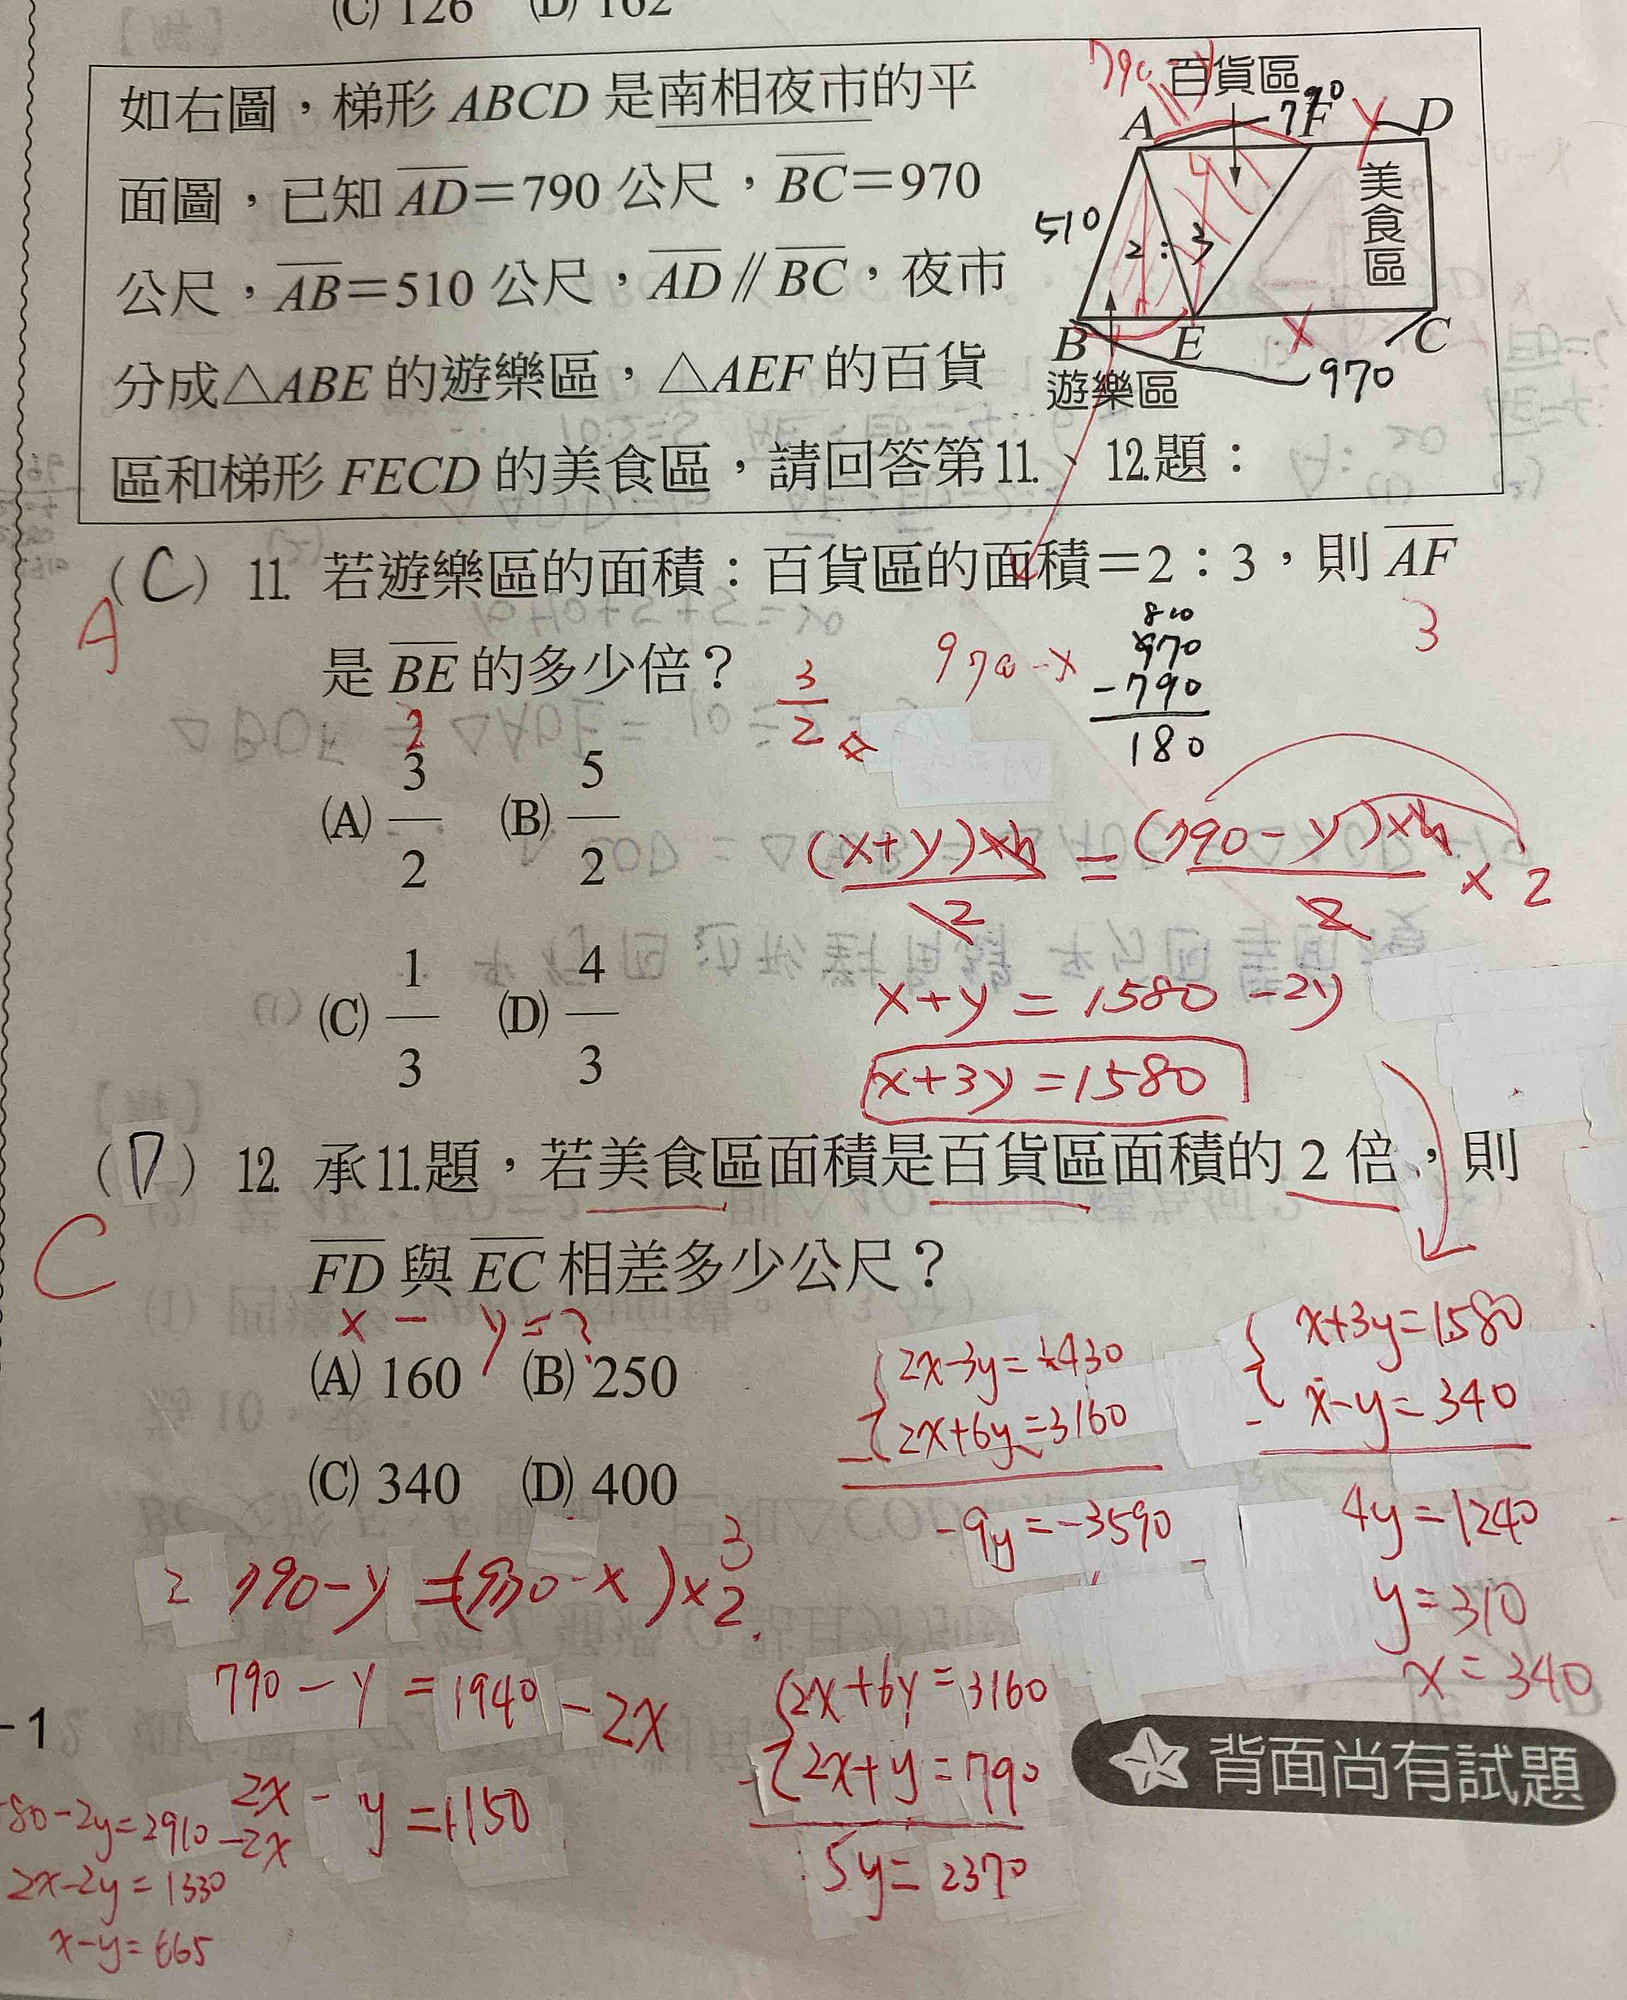 (C) 126 (D) 162
如右圖，梯形 ABCD 是南相夜市的平
面圖，已知 AD＝790 公尺，BC＝970
公尺，AB＝510 公尺，AD // BC，夜市
分成△ABE 的遊樂區，△AEF 的百貨
區和梯形 FECD 的美食區，請回答第11.、12.題：
790-y 百貨區 790
A F y D
美食區
510 2:3
B E x C
遊樂區 970
(C) 11. 若遊樂區的面積：百貨區的面積＝2：3，則 AF
A
3
是 BE 的多少倍？ 3/2 970-x
810
970
-790
180
2
(A) 3/2 (B) 5/2
(C) 1/3 (D) 4/3
(x+y)×h/2 = (790-y)×h/2 ×2
x+y=1580-2y
x+3y=1580
(D) 12. 承11.題，若美食區面積是百貨區面積的 2 倍，則
C
FD 與 EC 相差多少公尺？
x - y=?
(A) 160 (B) 250
(C) 340 (D) 400
2x+6y=3160
-9y=-3590
x+3y=1580
- x-y=340
4y=1240
y=310
x=340
790-y=1940-2x
2x-y=1150
2x+6y=3160
- 2x+y=790
5y=2370
80-2y=2910-2x
2x-2y=1330
x-y=665
-1
背面尚有試題